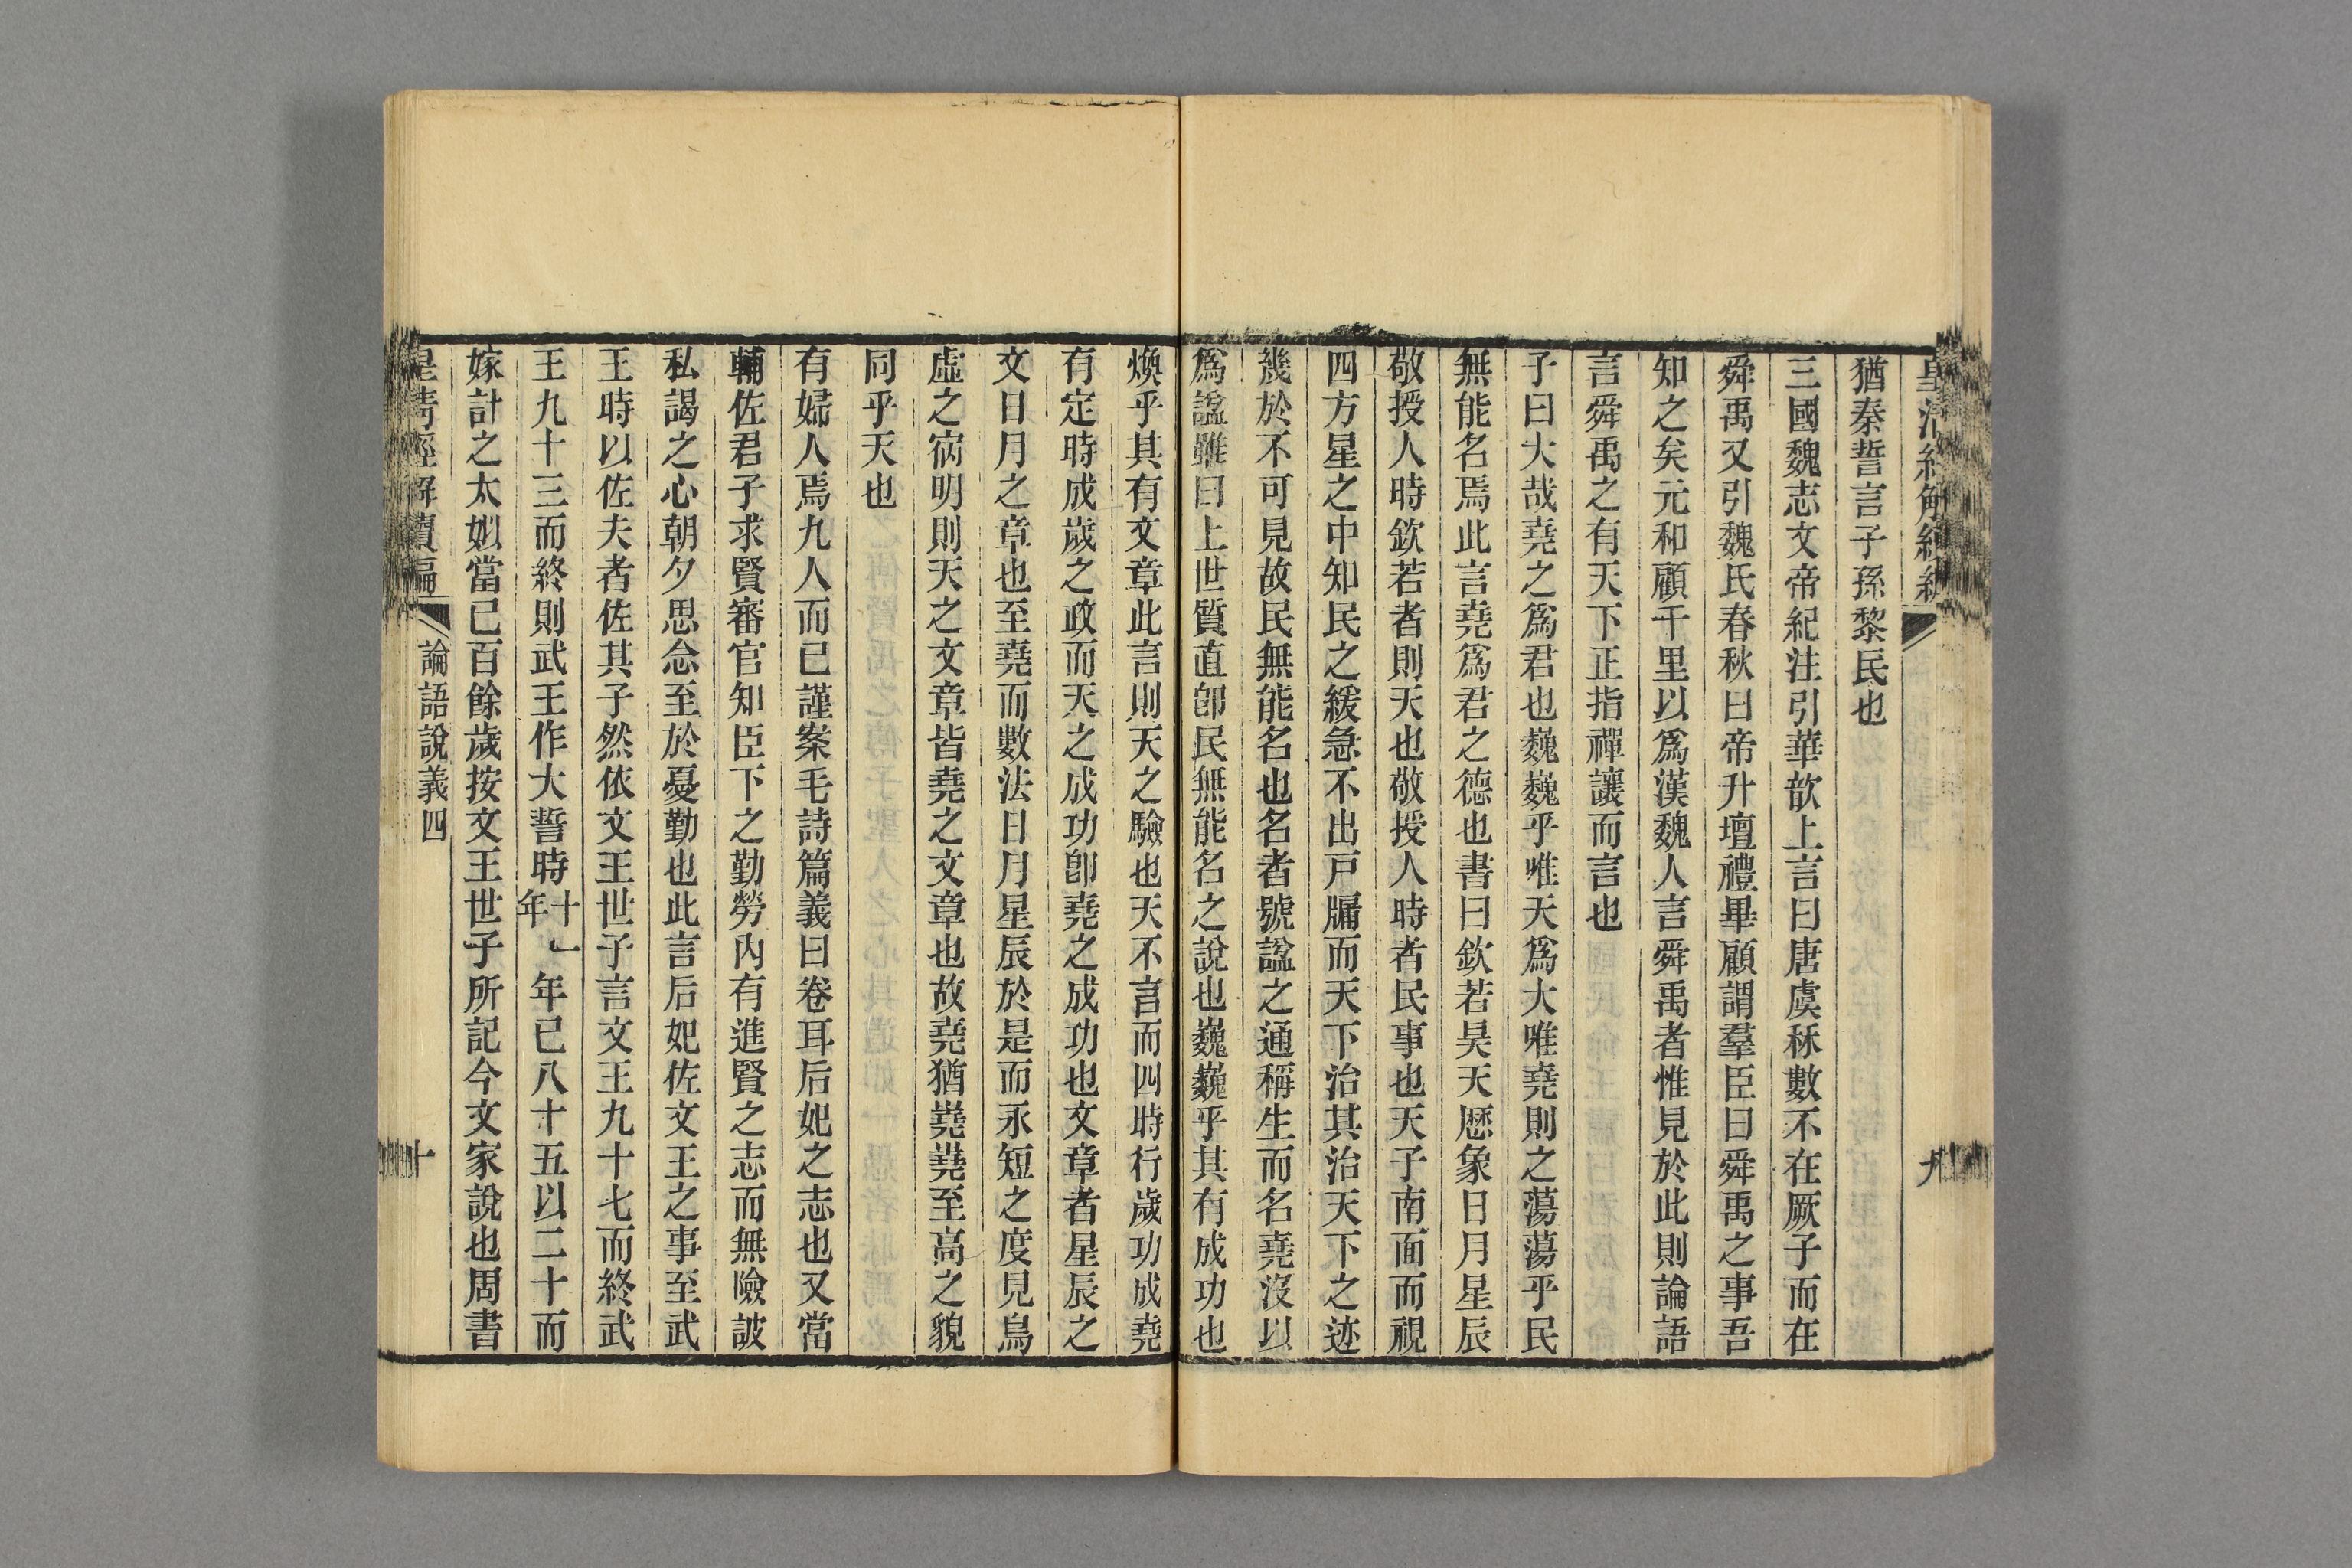 皇清經解續編
九
猶秦誓言子孫黎民也
三國魏志文帝紀注引華歆上言曰唐虞秝數不在厥子而在
舜禹又引魏氏春秋曰帝升壇禮畢顧謂羣臣曰舜禹之事吾
知之矣元和顧千里以爲漢魏人言舜禹者惟見於此則論語
言舜禹之有天下正指禪讓而言也
子曰大哉堯之爲君也巍巍乎唯天爲大唯堯則之蕩蕩乎民
無能名焉此言堯爲君之德也書曰欽若昊天厯象日月星辰
敬授人時欽若者則天也敬授人時者民事也天子南面而視
四方星之中知民之緩急不出戸牖而天下治其治天下之迹
幾於不可見故民無能名也名者號諡之通稱生而名堯沒以
爲諡雖曰上世質直卽民無能名之說也巍巍乎其有成功也
煥乎其有文章此言則天之驗也天不言而四時行歲功成堯
有定時成歲之政而天之成功卽堯之成功也文章者星辰之
文日月之章也至堯而數法日月星辰於是而永短之度見鳥
虛之㝛明則天之文章皆堯之文章也故堯猶嶢嶢至高之貌
同乎天也
有婦人焉九人而已謹案毛詩篇義曰卷耳后妃之志也又當
輔佐君子求賢審官知臣下之勤勞內有進賢之志而無險詖
私謁之心朝夕思念至於憂勤也此言后妃佐文王之事至武
王時以佐夫者佐其子然依文王世子言文王九十七而終武
王九十三而終則武王作大誓時十一年年已八十五以二十而
嫁計之太姒當已百餘歲按文王世子所記今文家說也周書
皇清經解續編
論語說義四
十